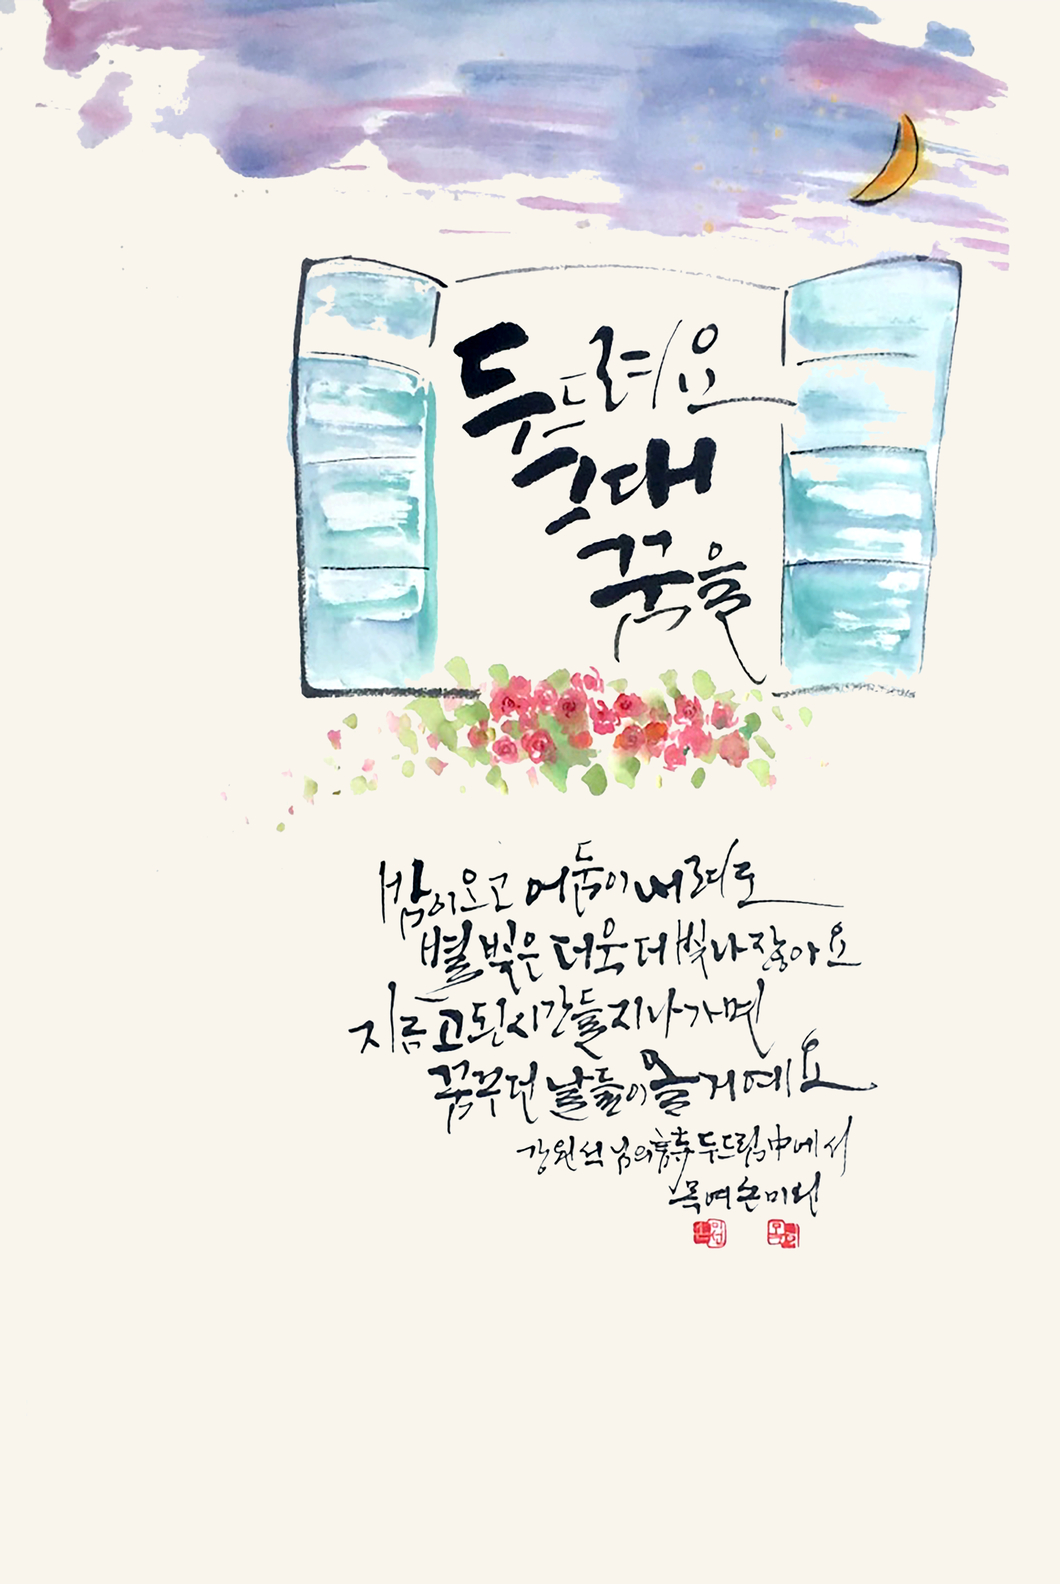 두드려요
그대
꿈을
밤이 오고 어둠이 내려도
별빛은 더욱 더 빛나잖아요
지금 고된 시간들 지나가면
꿈꾸던 날들이 올 거예요
강원석 님의 詩 두드림 中에서
목여 손미현